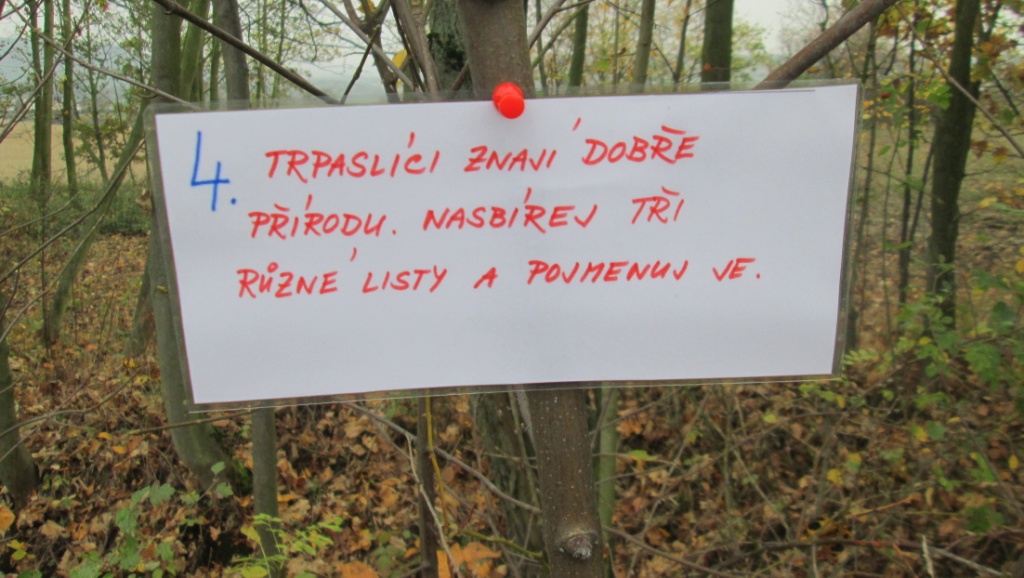 4. TRPASLÍCI ZNAJÍ DOBŘE
PŘÍRODU. NASBÍREJ TŘI
RŮZNÉ LISTY A POJMENUJ JE.